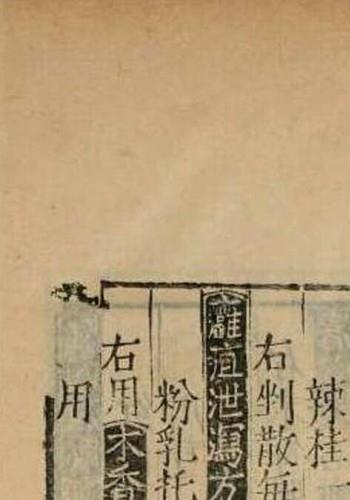 辣桂
右剉散每
癰疽泄瀉方
粉乳托
右用木香
用